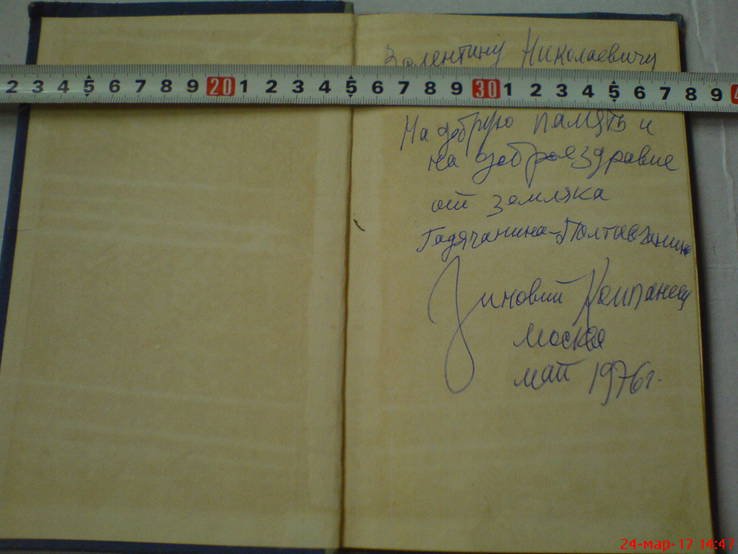 Валентину Николаевичу
2 3 4 5 6 7 8 9 20 1 2 3 4 5 6 7 8 9 30 1 2 3 4 5 6 7 8 9
На добрую память и
на доброе здравие
от земляка
Гадячанина-Полтавчанина
Зиновий Компанеец
Москва
май 1976 г.
24-мар-17 14:47